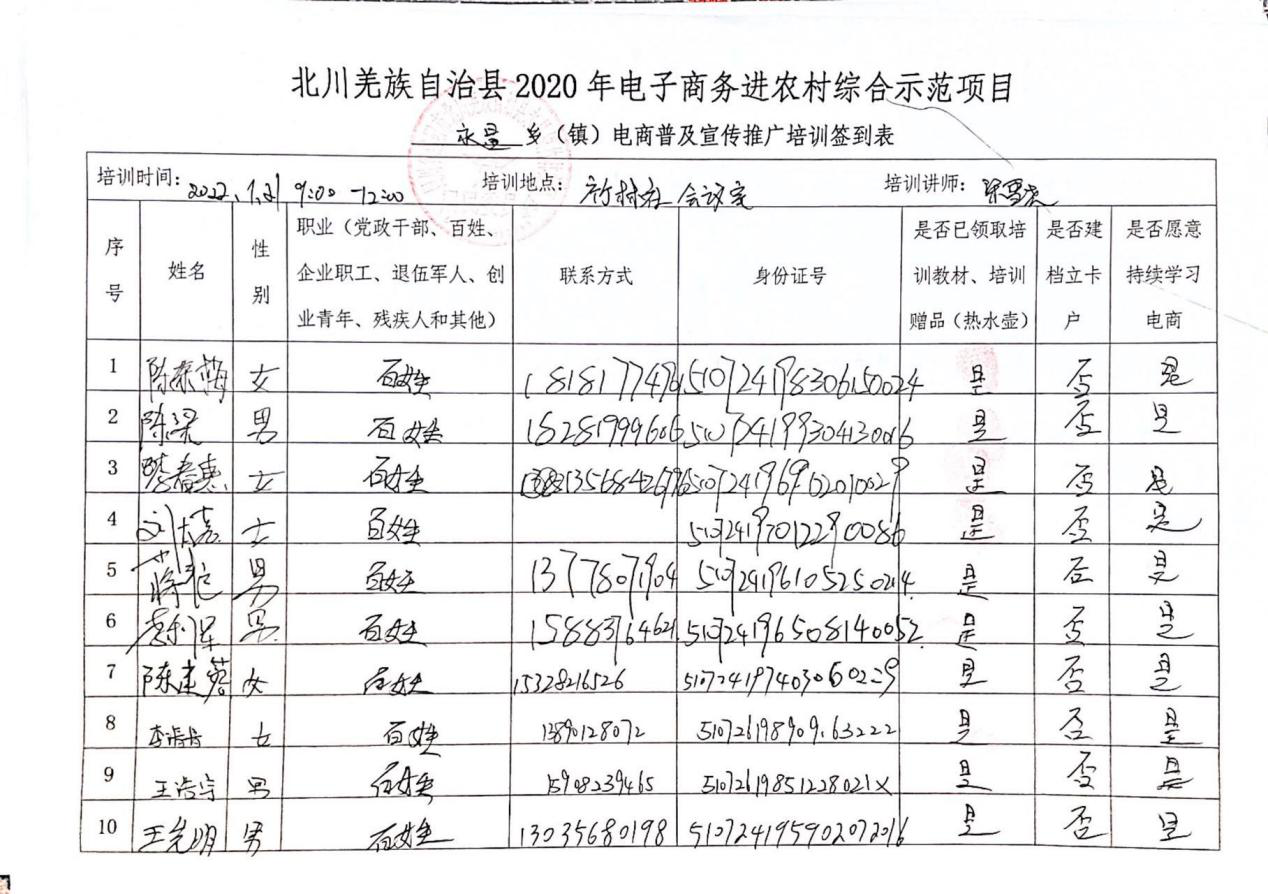 北川羌族自治县 2020 年电子商务进农村综合示范项目
永昌 乡（镇）电商普及宣传推广培训签到表
培训时间：2022.1.21 9:00-12:00 培训地点： 会议室 培训讲师：
序号 姓名 性别 职业（党政干部、百姓、企业职工、退伍军人、创业青年、残疾人和其他） 联系方式 身份证号 是否已领取培训教材、培训赠品（热水壶） 是否建档立卡户 是否愿意持续学习电商
1 女 百姓 1818177496 510724198306150024 是 否 是
2 陈梁 男 百姓 18281999606 510724199304130016 是 否 是
3 女 百姓 510724196962010029 是 否 是
4 女 百姓 510724197012290086 是 否 是
5 男 百姓 13778071904 510724196105250214 是 否 是
6 男 百姓 15883764621 510724196508140052 是 否 是
7 陈建蓉 女 百姓 15328216526 510724197403060229 是 否 是
8 女 百姓 13890128072 是 否 是
9 王浩宇 男 百姓 15908239465 51072619851228021X 是 否 是
10 王光明 男 百姓 13035680198 510724195902072016 是 否 是